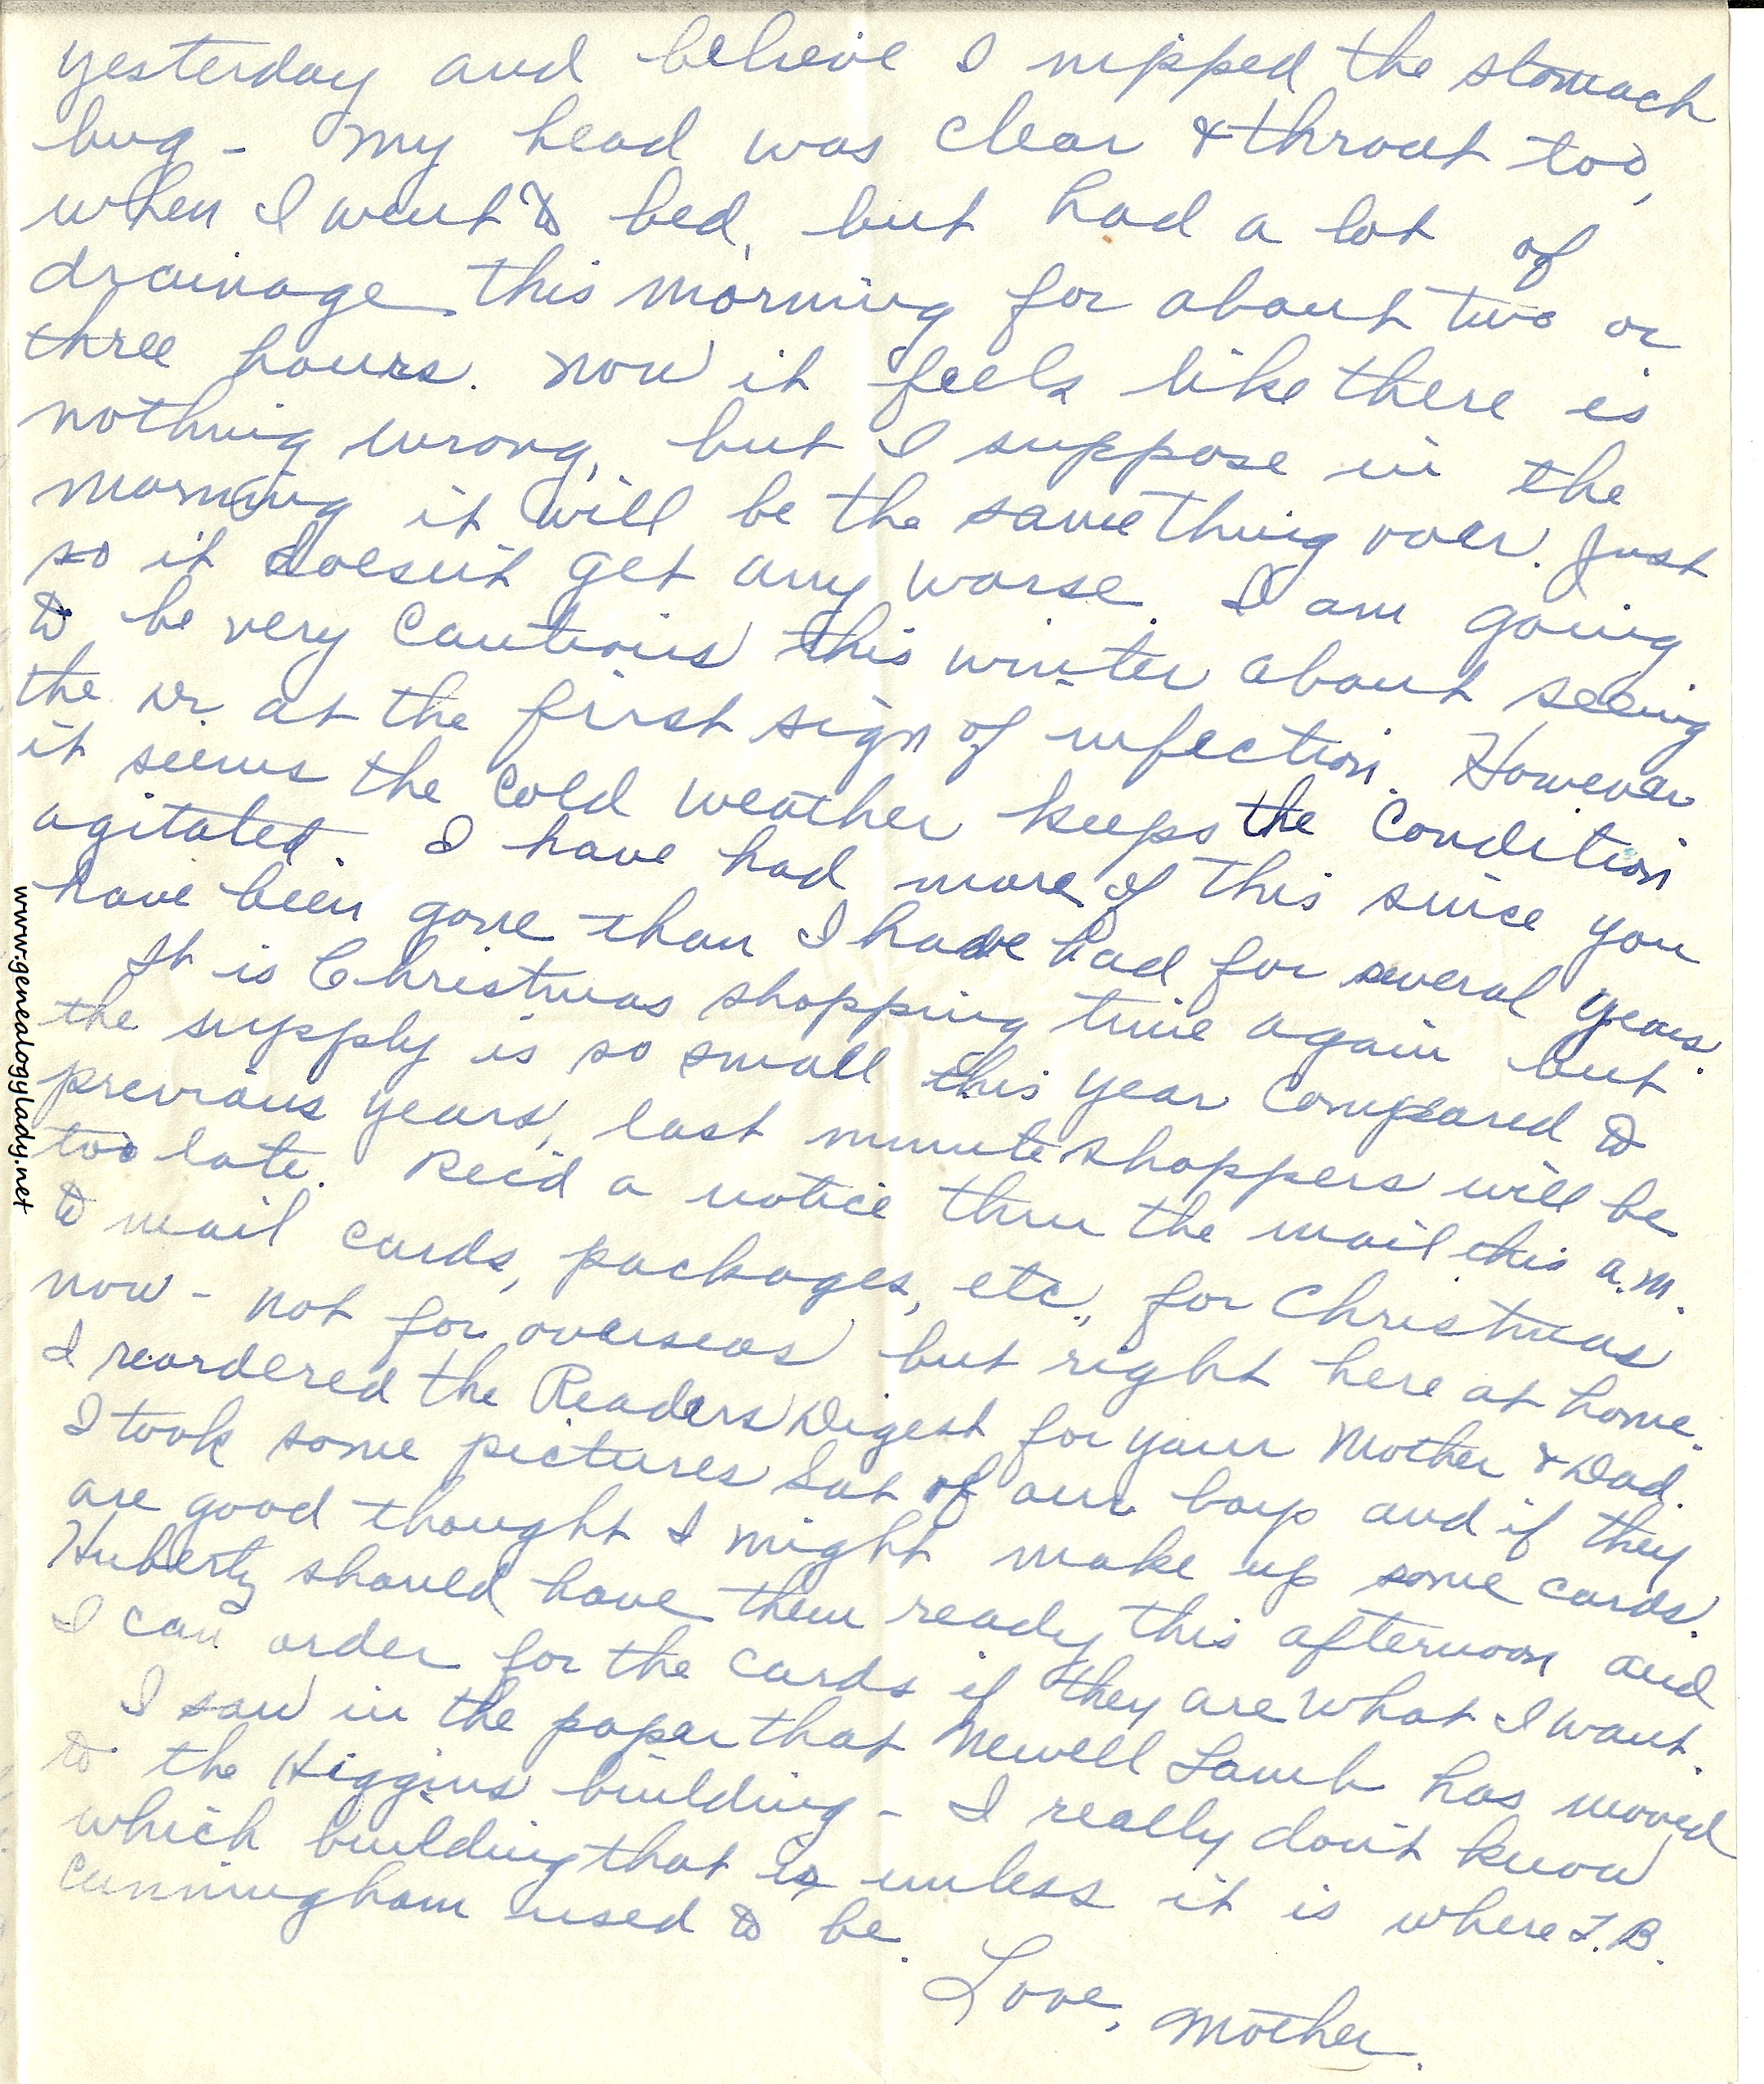 yesterday and believe I nipped the stomach
bug - My head was clear & throat too,
when I went to bed, but had a lot of
drainage this morning for about two or
three hours. Now it feels like there is
nothing wrong, but I suppose in the
morning it will be the same thing over. Just
so it doesn't get any worse. I am going
to be very cautious this winter about seeing
the Dr. at the first sign of infection. However
it seems the cold weather keeps the condition
agitated. I have had more of this since you
have been gone than I have had for several years.
It is Christmas shopping time again but
the supply is so small this year compared to
previous years, last minute shoppers will be
too late. Rec'd a notice thru the mail this a.m.
to mail cards, packages, etc., for Christmas
now - not for overseas but right here at home.
I reordered the Readers Digest for your Mother & Dad.
I took some pictures Sat of our boys and if they
are good thought I might make up some cards.
Huberty should have them ready this afternoon and
I can order for the cards if they are what I want.
I saw in the paper that Newell Lamb has moved
to the Higgins building - I really don't know
which building that is unless it is where T.B.
Cunningham used to be.
Love, Mother.
www.genealogylady.net